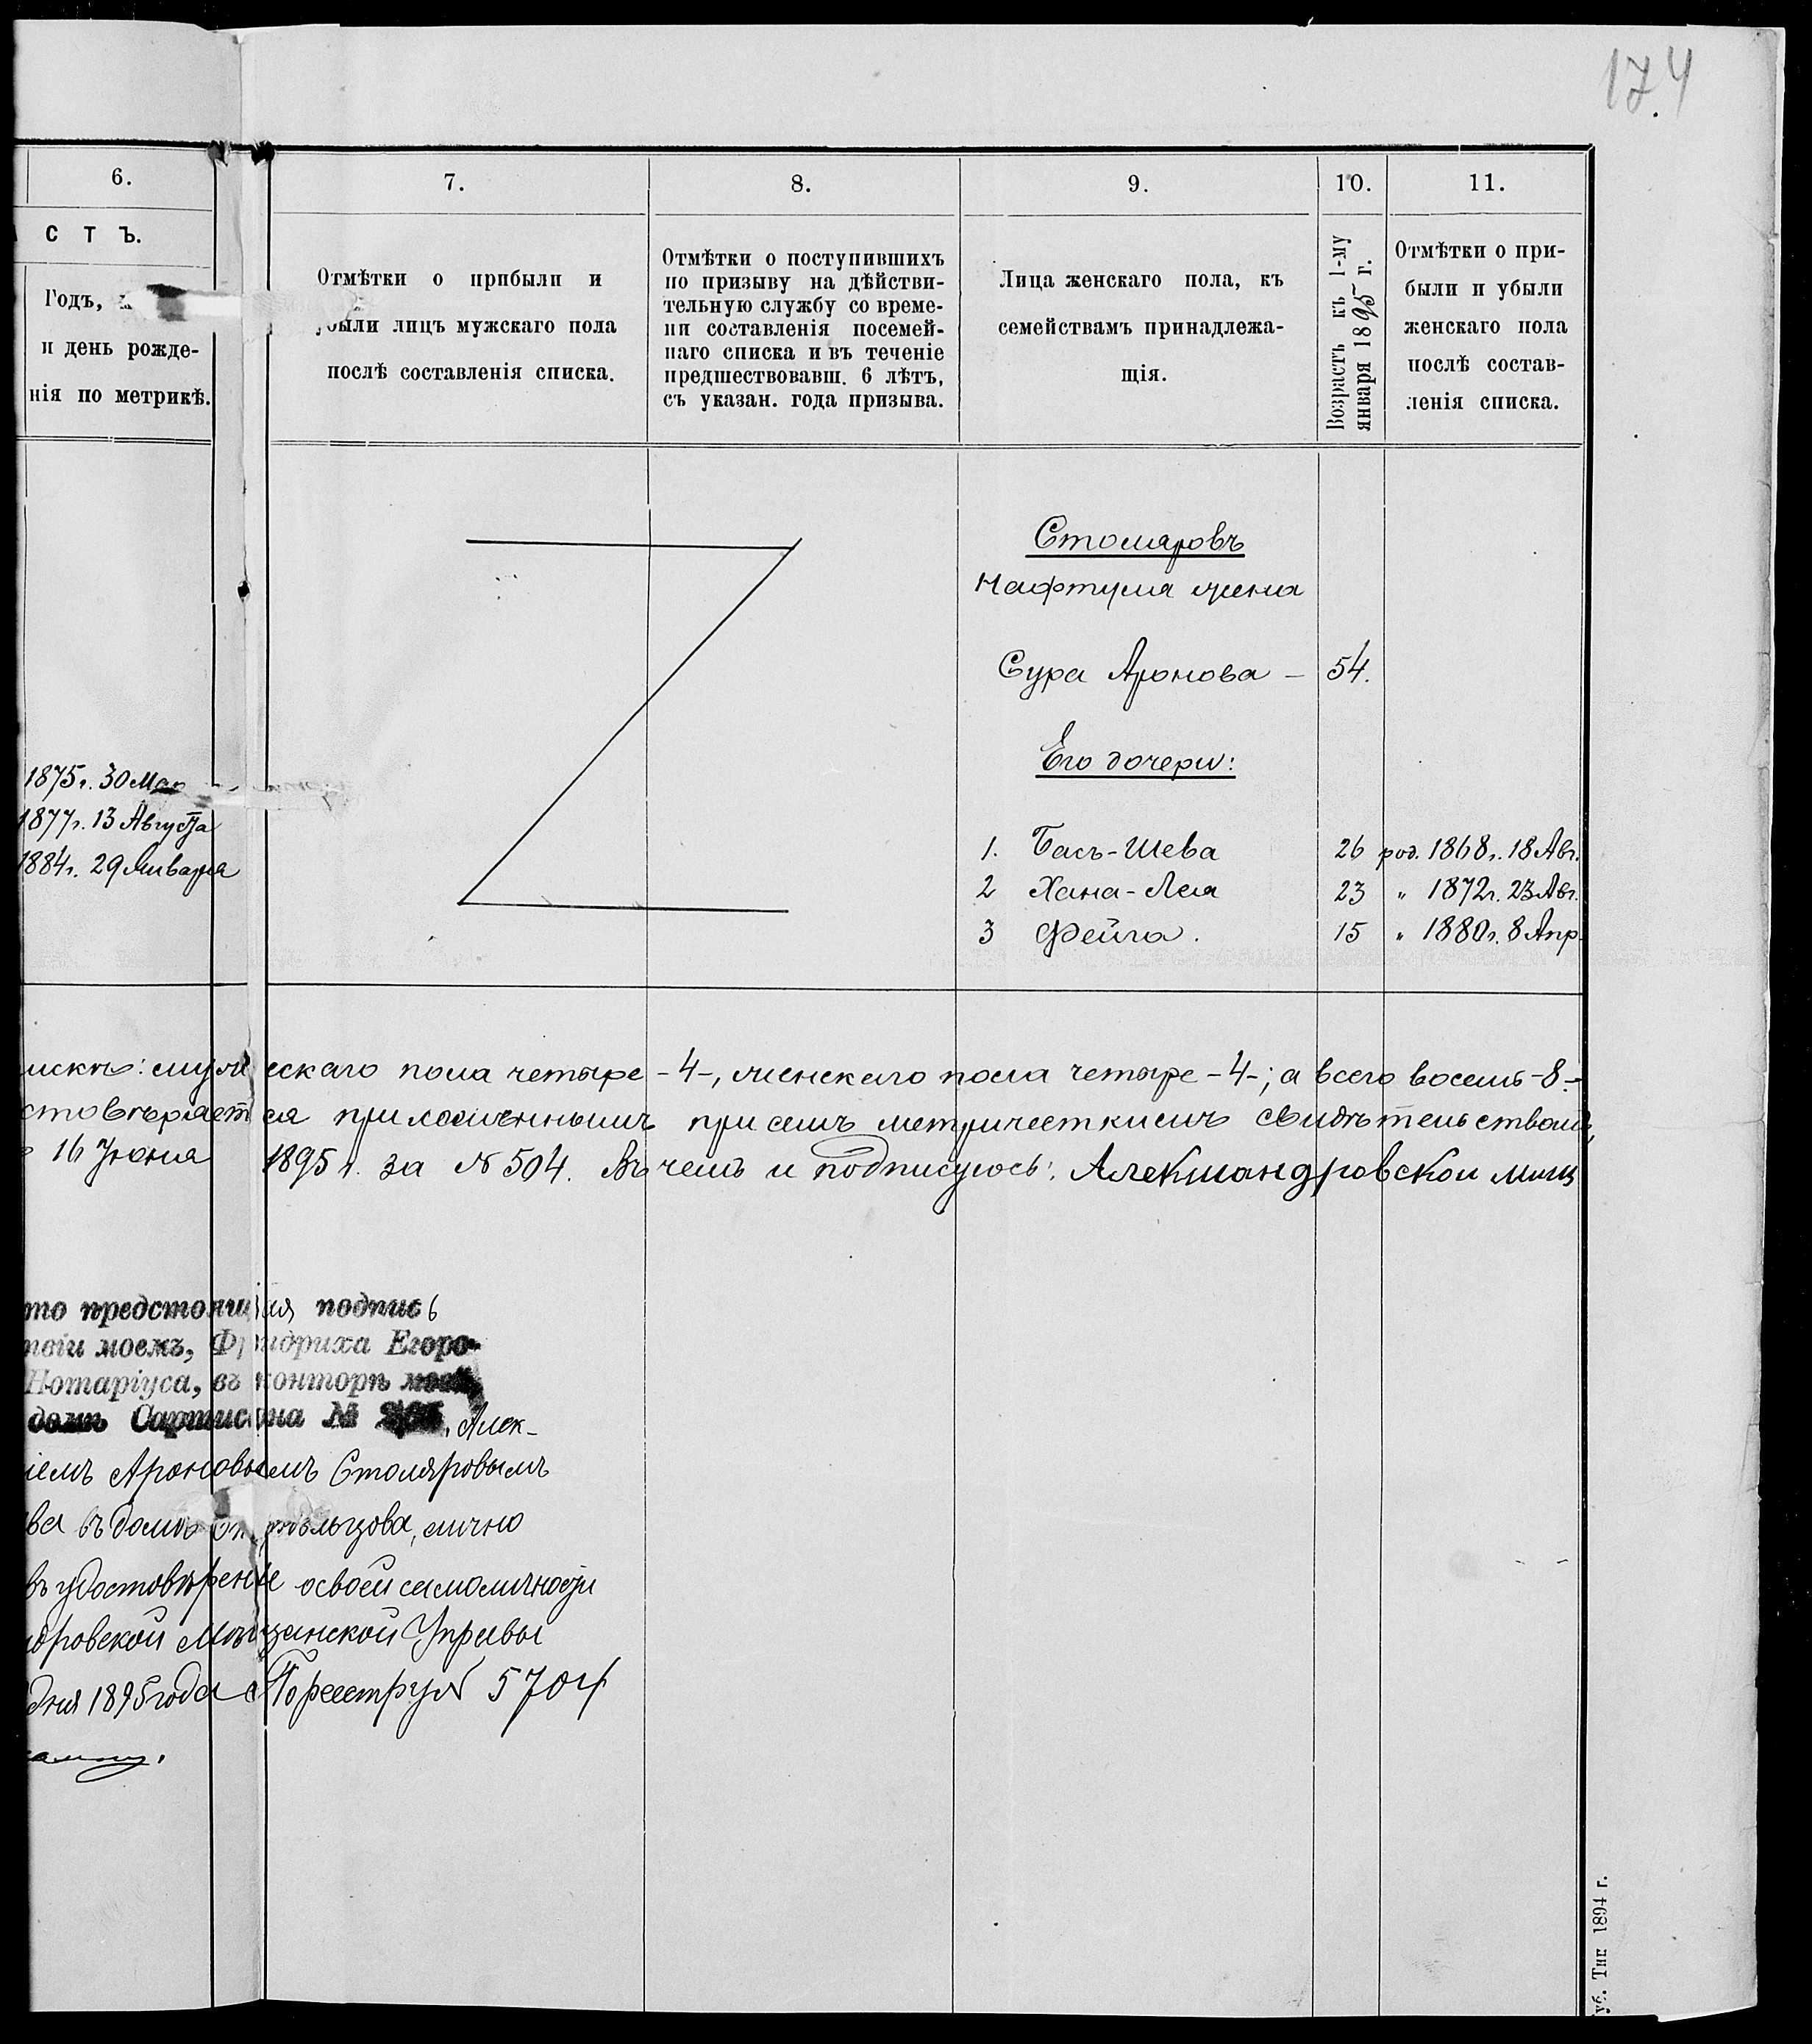 174
6.
7.
8.
9.
10.
11.
С Т Ъ.
Годъ,
и день рожде-
нія по метрикѣ.
Отмѣтки о прибыли и
убыли лицъ мужскаго пола
послѣ составленія списка.
Отмѣтки о поступившихъ
по призыву на дѣйстви-
тельную службу со време-
ни составленія посемей-
наго списка и въ теченіе
предшествовавш. 6 лѣтъ,
съ указан. года призыва.
Лица женскаго пола, къ
семействамъ принадлежа-
щія.
Возрастъ къ 1-му
января 1895 г.
Отмѣтки о при-
были и убыли
женскаго пола
послѣ состав-
ленія списка.
Столяровъ
Нафтула жена
Сура Аронова – 54.
Его дочери:
1875г. 30 Мая
1877г. 13 Августа
1884г. 29 Января
1. Бась-Шева 26 род. 1868г. 18 Авг.
2 Хана-Лея 23 " 1872г. 23 Авг.
3 Фейга. 15 " 1880г. 8 Апр.
ческаго пола четыре -4-, женскаго пола четыре -4-; а всего восемь -8-
стовѣряется приложеннымъ при семъ метрическимъ свидѣтельствомъ,
16 Июня 1895 г. за № 504. Въ чемъ и подписуюсь: Александровской мѣщ
то предстоящая подпись
твіи моемъ, Фридриха Егоро-
Нотаріуса, въ конторѣ моей,
домѣ Сартисона №, Алек-
іемъ Ароновымъ Столяровымъ
ва въ домѣ лично
въ удостовѣреніе своей самоличности
дровской Мѣщанской Управы
дня 1895 года По реестру № 5704
уб. Тип 1894 г.